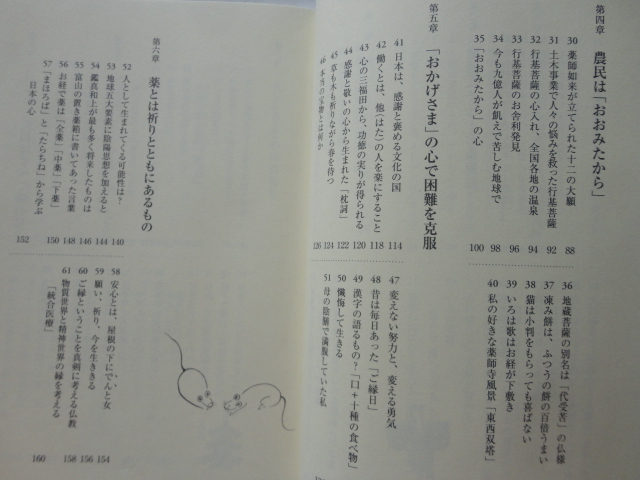 第四章 農民は「おおみたから」
30 薬師如来が立てられた十二の大願 88
31 土木事業で人々の悩みを救った行基菩薩 92
32 行基菩薩の心入れ、全国各地の温泉 94
33 行基菩薩のお舎利発見 96
34 今も九億人が飢えで苦しむ地球で 98
35 「おおみたから」の心 100
36 地蔵菩薩の別名は「代受苦」の仏様
37 凍み餅は、ふつうの餅の百倍うまい
38 猫は小判をもらっても喜ばない
39 いろは歌はお経が下敷き
40 私の好きな薬師寺風景「東西双塔」
第五章 「おかげさま」の心で困難を克服
41 日本は、感謝と褒める文化の国 114
42 働くとは、他（はた）の人を楽にすること 118
43 心の三福田から、功徳の実りが得られる 120
44 感謝と敬いの心から生まれた「枕詞」 122
45 草も木も祈りながら春を待つ 124
46 本当の宝物とは何か 126
47 変えない努力と、変える勇気
48 昔は毎日あった「ご縁日」
49 漢字の語るもの？「口＋十種の食べ物」
50 懺悔して生きる
51 母の陰膳で満腹していた私
第六章 薬とは祈りとともにあるもの
52 人として生まれてくる可能性は？ 140
53 地球五大要素に陰陽思想を加えると 144
54 鑑真和上が最も多く将来したものは 146
55 富山の置き薬箱に書いてあった言葉 148
56 お経で薬は「全薬」「中薬」「下薬」 150
57 「まほろば」と「たらちね」から学ぶ
日本の心 152
58 安心とは、屋根の下にでんと女 154
59 願い、祈り、今を生ききる 156
60 ご縁ということを真剣に考える仏教 158
61 物質世界と精神世界の縁を考える
「統合医療」 160